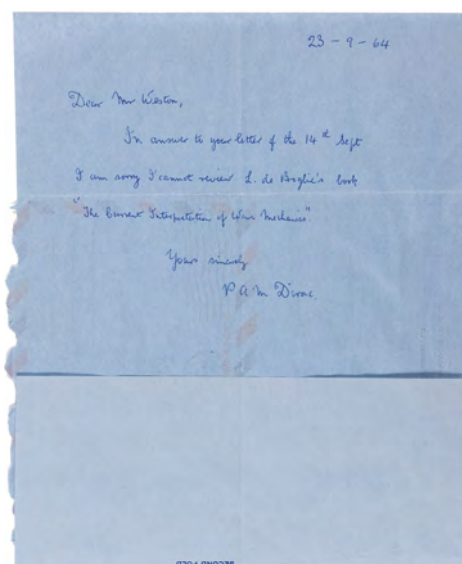 23 - 9 - 64
Dear Mr Weston,
In answer to your letter of the 14th Sept
I am sorry I cannot review L. de Broglie's book
"The Current Interpretation of Wave Mechanics".
Yours sincerely
P A M Dirac.